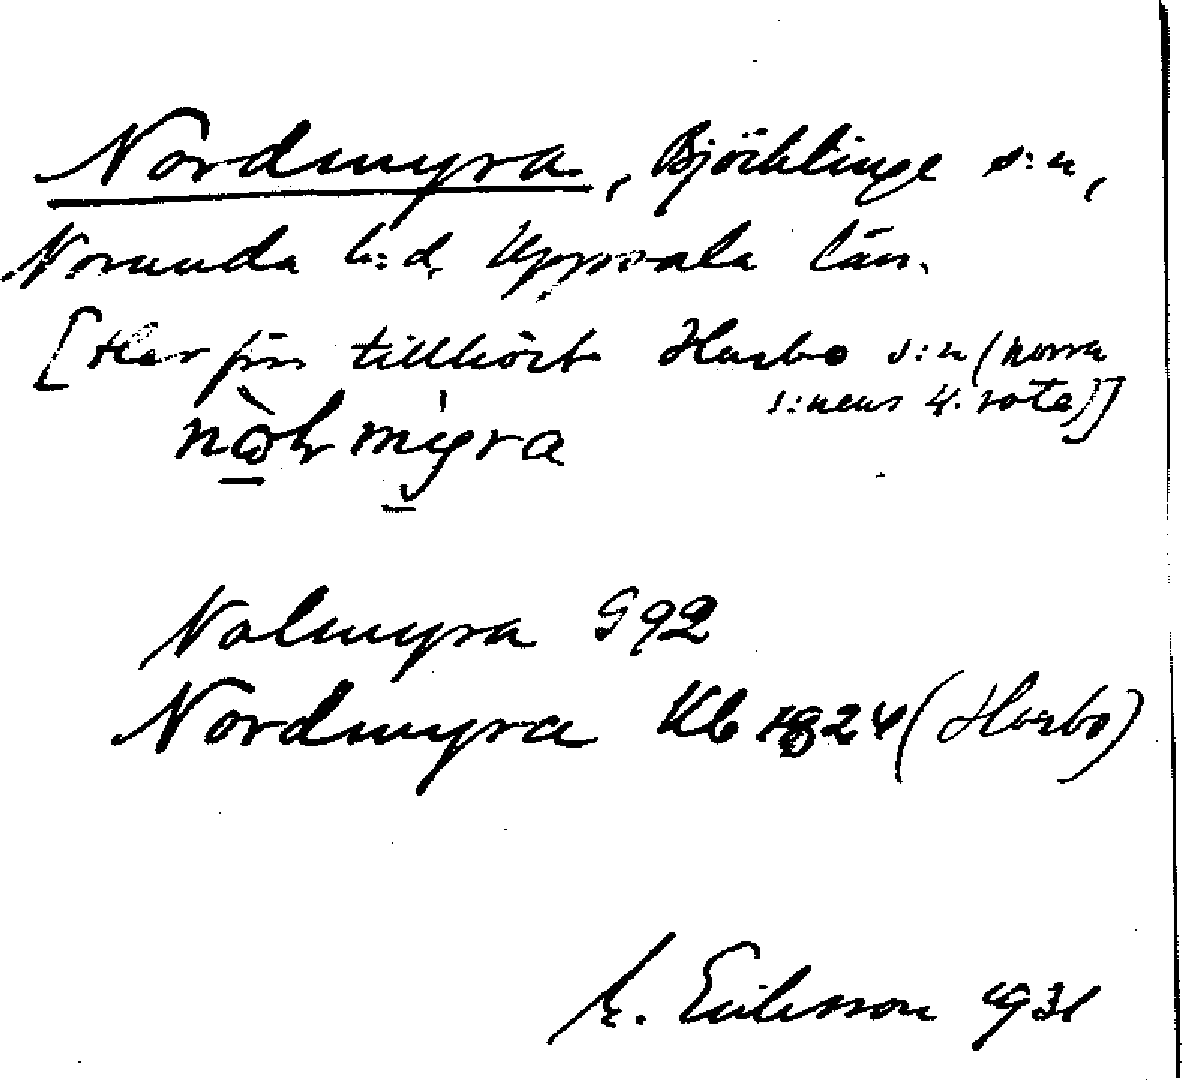 Nordmyra, Björklinge s:n,
Norunda h:d, Uppsala län.
[Har förr tillhört Harbo s:n (norra
s:nens 4. rote)]
Nolmyra G 92
Nordmyra Kb 1824 (Harbo)
M. Eriksson 1931